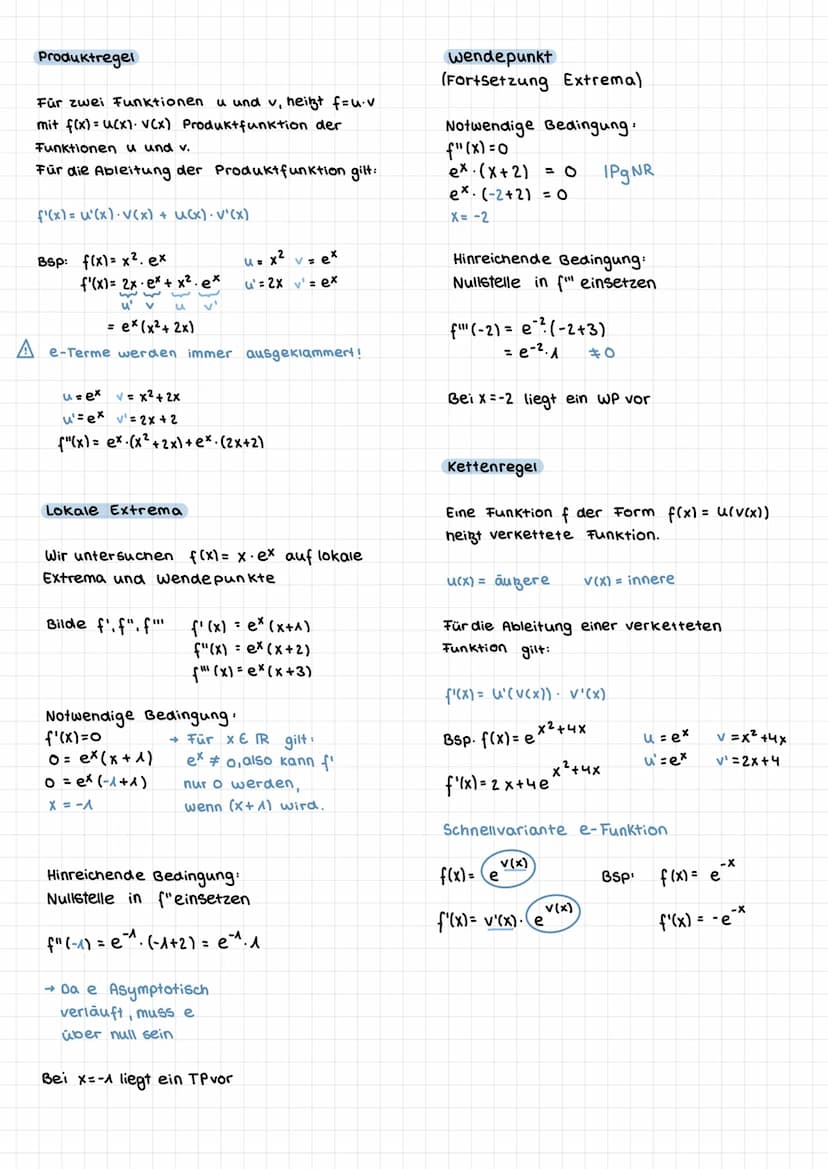 Produktregel
Für zwei Funktionen u und v, heißt f=u·v
mit f(x)= u(x)· v(x) Produktfunktion der
Funktionen u und v.
Für die Ableitung der Produktfunktion gilt:
f'(x)= u'(x)·v(x) + u(x)·v'(x)
Bsp: f(x)= x²·eˣ u = x² v = eˣ
f'(x)= 2x·eˣ + x²·eˣ u' = 2x v' = eˣ
u' v u v'
= eˣ(x²+2x)
⚠ e-Terme werden immer ausgeklammert!
u = eˣ v = x²+2x
u' = eˣ v' = 2x+2
f"(x)= eˣ·(x²+2x)+eˣ·(2x+2)
Lokale Extrema
Wir untersuchen f(x)= x·eˣ auf lokale
Extrema und Wendepunkte
Bilde f', f", f''' f'(x) = eˣ(x+1)
f"(x) = eˣ(x+2)
f'''(x) = eˣ(x+3)
Notwendige Bedingung:
f'(x)=0 → Für x∈ℝ gilt:
0 = eˣ(x+1) eˣ ≠ 0, also kann f'
0 = eˣ(-1+1) nur 0 werden,
x = -1 wenn (x+1) wird.
Hinreichende Bedingung:
Nullstelle in f" einsetzen
f"(-1) = e⁻¹·(-1+2) = e⁻¹·1
→ Da e Asymptotisch
verläuft, muss e
über null sein
Bei x=-1 liegt ein TP vor
Wendepunkt
(Fortsetzung Extrema)
Notwendige Bedingung:
f"(x)=0
eˣ·(x+2) = 0 |PgNR
eˣ·(-2+2) = 0
x = -2
Hinreichende Bedingung:
Nullstelle in f''' einsetzen
f'''(-2) = e⁻²·(-2+3)
= e⁻²·1 ≠0
Bei x=-2 liegt ein WP vor
Kettenregel
Eine Funktion f der Form f(x) = u(v(x))
heißt verkettete Funktion.
u(x) = äußere v(x) = innere
Für die Ableitung einer verketteten
Funktion gilt:
f'(x)= u'(v(x))· v'(x)
Bsp. f(x)= e^x²+4x u = eˣ v = x²+4x
u' = eˣ v' = 2x+4
f'(x)= 2x+4e^x²+4x
Schnellvariante e-Funktion
f(x)= e^v(x) Bsp: f(x) = e⁻ˣ
f'(x)= v'(x)· e^v(x) f'(x) = -e⁻ˣ